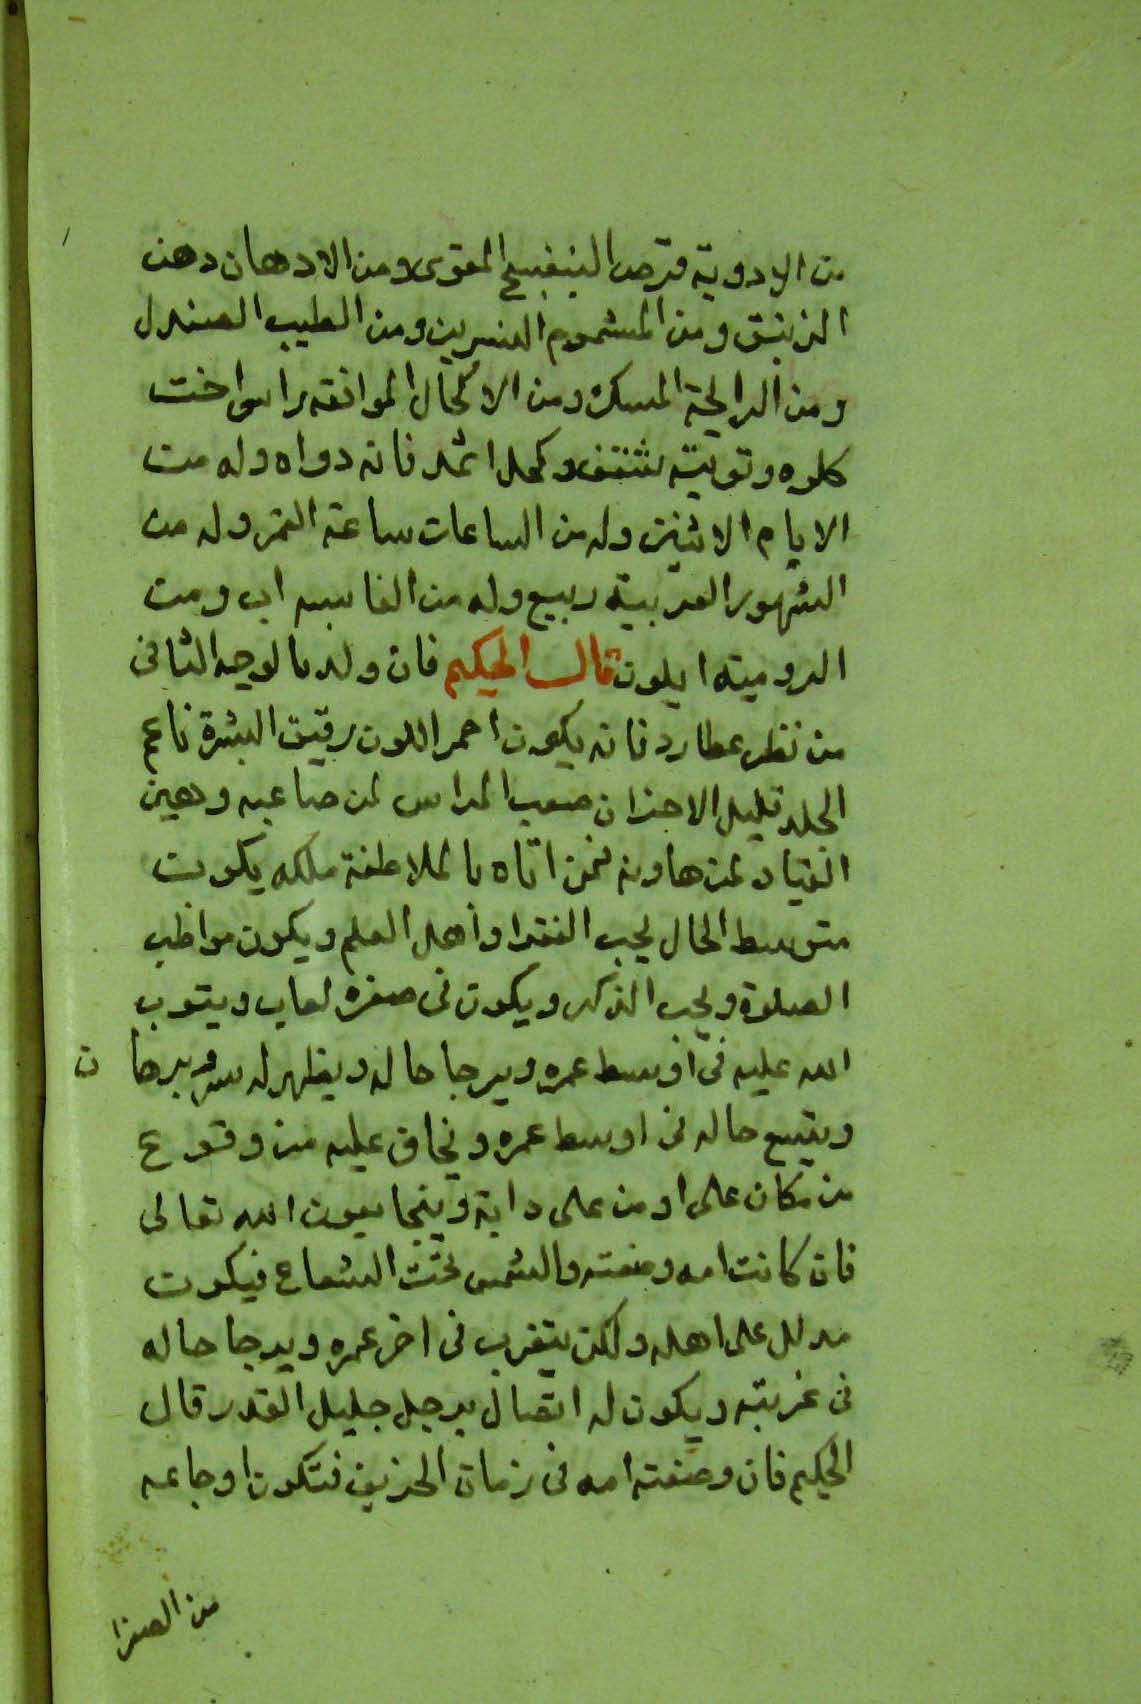 من الادوية قرص البنفسج المقوى ومن الادهان دهن
الزنبق ومن المشموم النسرين ومن الطيب الصندل
ومن الرايحة المسك ومن الاكحال الموافقه راسواخت
كلوه وتوتيته وكحل اثمد فانه دواه وله من
الايام الاثنين وله من الساعات ساعة القمر وله من
الشهور العربية ربيع وله من الفاسيه اب ومن
الروميته ايلون قال الحكيم فان ولد بالوجه الثانى
من نظر عطارد فانه يكون احمر اللون رقيق البشرة ناعم
الجلد قليل الاحزان صعب المراس لمن صاعبه وهين
القياد لمن هاونه فمن اتاه بالملاطفة ملكه يكون
متوسط الحال يحب الفقرا واهل العلم ويكون مواظب
الصلوة ويحب الذكر ويكون فى صغره لعاب ويتوب
الله عليه فى اوسط عمره ويرجا حاله ويظهر له سر وبرهان
ويتسع حاله فى اوسط عمره ويخاف عليه من وقوع
من مكان على او من على دابة وينجا بعون الله تعالى
فان كانت امه وضعته والشمس تحت الشعاع فيكون
مدلل على اهله ولكن يتغرب فى اخر عمره ويرجا حاله
فى غربته ويكون له اتصال برجل جليل القدر قال
الحكيم فان وضعته امه فى زمان الخريف فتكون اوجاعه
من الصفرا